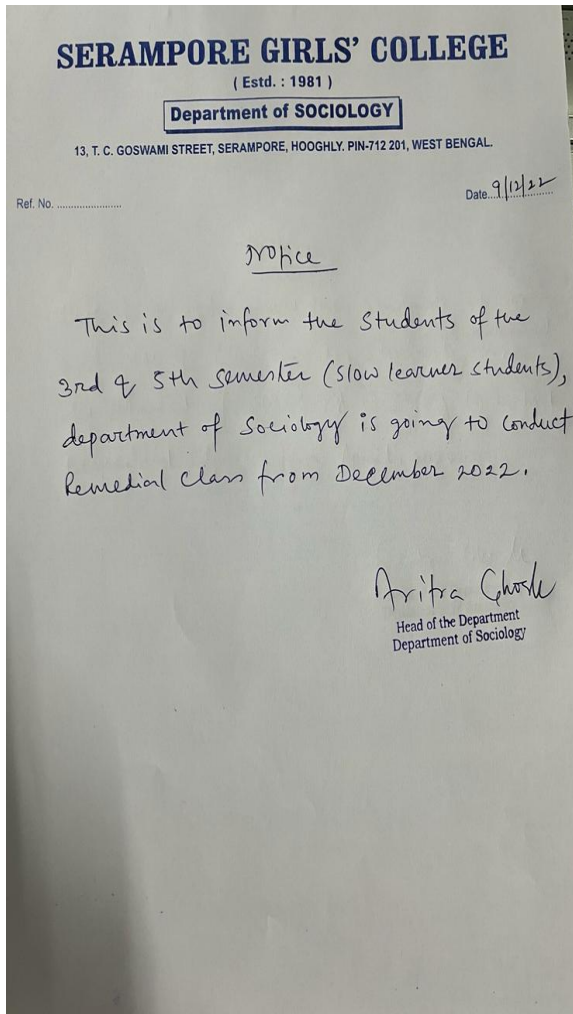 SERAMPORE GIRLS' COLLEGE
( Estd. : 1981 )
Department of SOCIOLOGY
13, T. C. GOSWAMI STREET, SERAMPORE, HOOGHLY. PIN-712 201, WEST BENGAL.
Ref. No. ......................
Date...9/12/22...
Notice
This is to inform the students of the
3rd & 5th semester (slow learner students),
department of Sociology is going to conduct
Remedial Class from December 2022.
Aritra Ghosh
Head of the Department
Department of Sociology